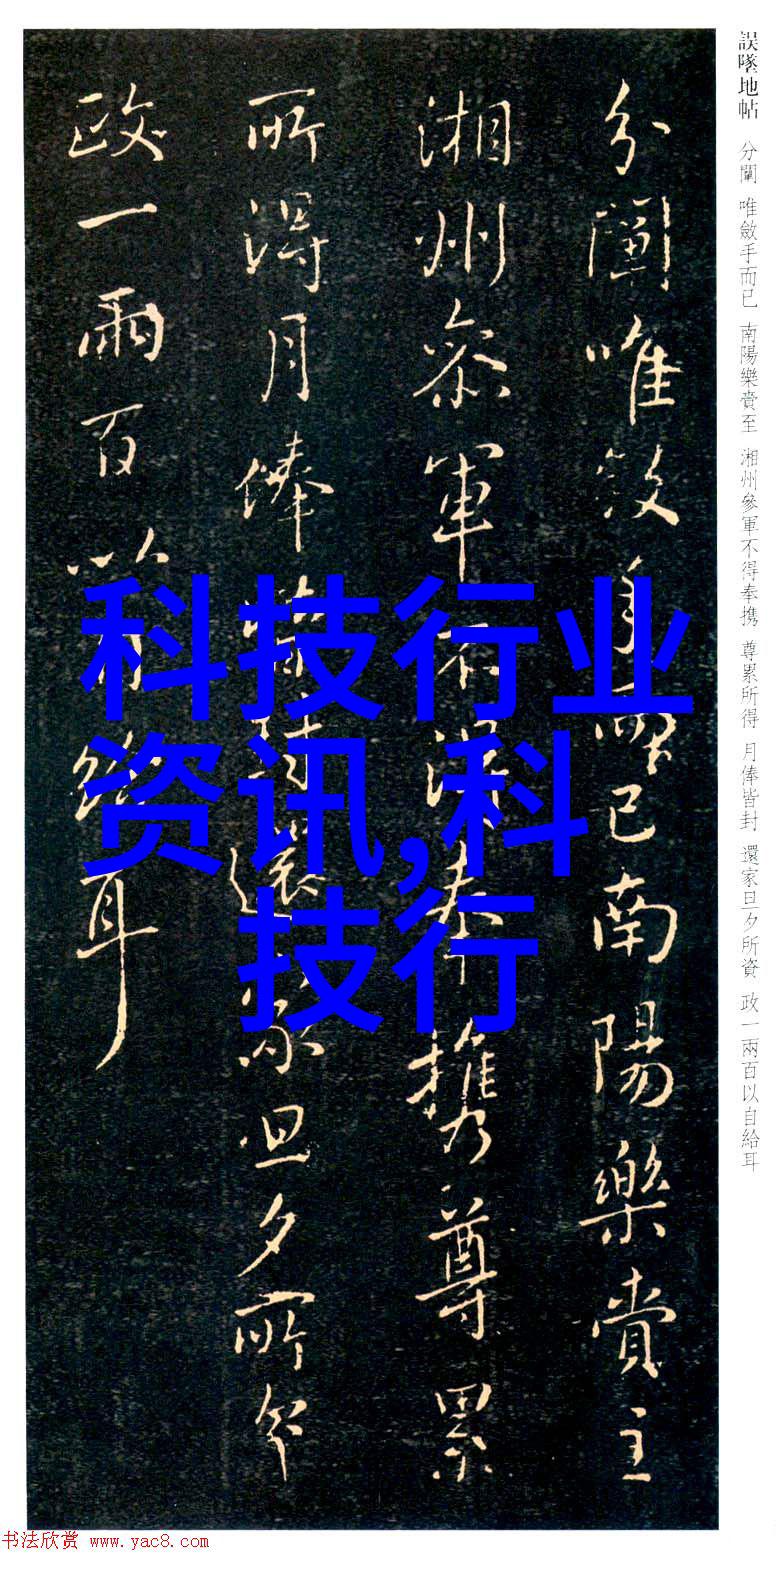 誤墜地帖 分闈 唯斂手而已 南陽樂賁至 湘州參軍不得奉携 尊累所得 月俸皆封 還家旦夕所資 政一兩百以自給耳
分闈唯斂手而已南陽樂賁至
湘州參軍不得奉携尊累
所得月俸皆封還家旦夕所資
政一兩百以自給耳
科技行业
资讯,科
技行
书法欣赏 www.yac8.com